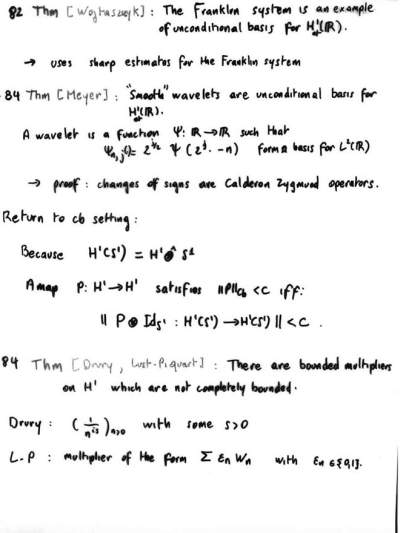 82 Thm [Wojtaszczyk] : The Franklin system is an example
of unconditional basis for H¹(ℝ).
→ uses sharp estimates for the Franklin system
84 Thm [Meyer] : "Smooth" wavelets are unconditional basis for
H¹(ℝ).
A wavelet is a function Ψ: ℝ→ℝ such that
Ψn,j(·) = 2^{j/2} Ψ(2^j · -n) form a basis for L²(ℝ)
→ proof : changes of signs are Calderon Zygmund operators.
Return to cb setting :
Because H¹(S¹) = H¹ ⊗̂ S¹
A map P: H¹→H¹ satisfies ||P||cb < C iff:
|| P ⊗ Id_{S¹} : H¹(S¹) → H¹(S¹) || < C .
84 Thm [Drury, Lust-Piquart] : There are bounded multipliers
on H¹ which are not completely bounded.
Drury : (1/n^{is})_{n>0} with some s>0
L.P : multiplier of the form Σ εn Wn with εn ∈ {0,1}.